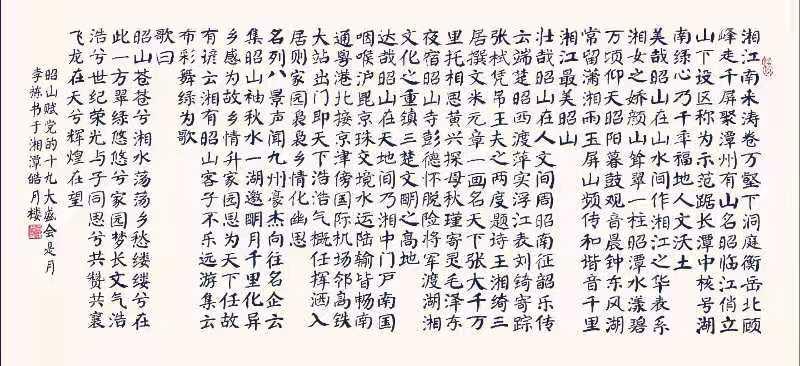 湘江南来涛卷万壑下洞庭衡岳北顾
峰走千屏聚潭州有山名昭临江俏立
山下设区称为示范踞长潭中核号湖
南绿心乃千平福地人文沃土
美哉昭山在山水间作湘江之华表系
湘女之娇颜山耸翠一柱昭潭水漾碧
万顷仰天昭阳暮鼓观音晨钟东风湖
常留潇湘雨玉屏山频传和谐音千里
湘江最美昭山
壮哉昭山在人文间周昭南征韶乐传
云端楚昭西渡萍实浮江表刘锜寄踪
张栻凭吊王夫之两度题诗王湘绮三
居撰文米元章一画名天下张大千万
里托相思黄兴探母秋瑾寄灵毛泽东
夜宿昭山寺彭德怀脱险将军渡湖湘
文化之重镇三楚文明之高地
达哉昭山在天地间乃湘中门户南国
咽喉沪昆京珠交境水运陆输皆畅南
通粤港北接京津傍国际机场邻高铁
大站出门即天下浩浩气概任挥洒入
居则家园袅袅乡情化幽思
名列八景声闻九州豪杰向往名企云
集昭山袖秋水一湖邀明月千里化异
乡感为故乡情升家园思为天下任故
有谚云湘有昭山客子不乐远游集云
布彩舞绿为歌
歌曰
昭山苍苍兮湘水荡荡乡愁缕缕兮在
此一方翠绿悠悠兮家园梦长文气浩
浩兮世纪荣光与子同思兮共赞共襄
飞龙在天兮辉煌在望
昭山赋党的十九大盛会是月
李栋书于湘潭皓月楼